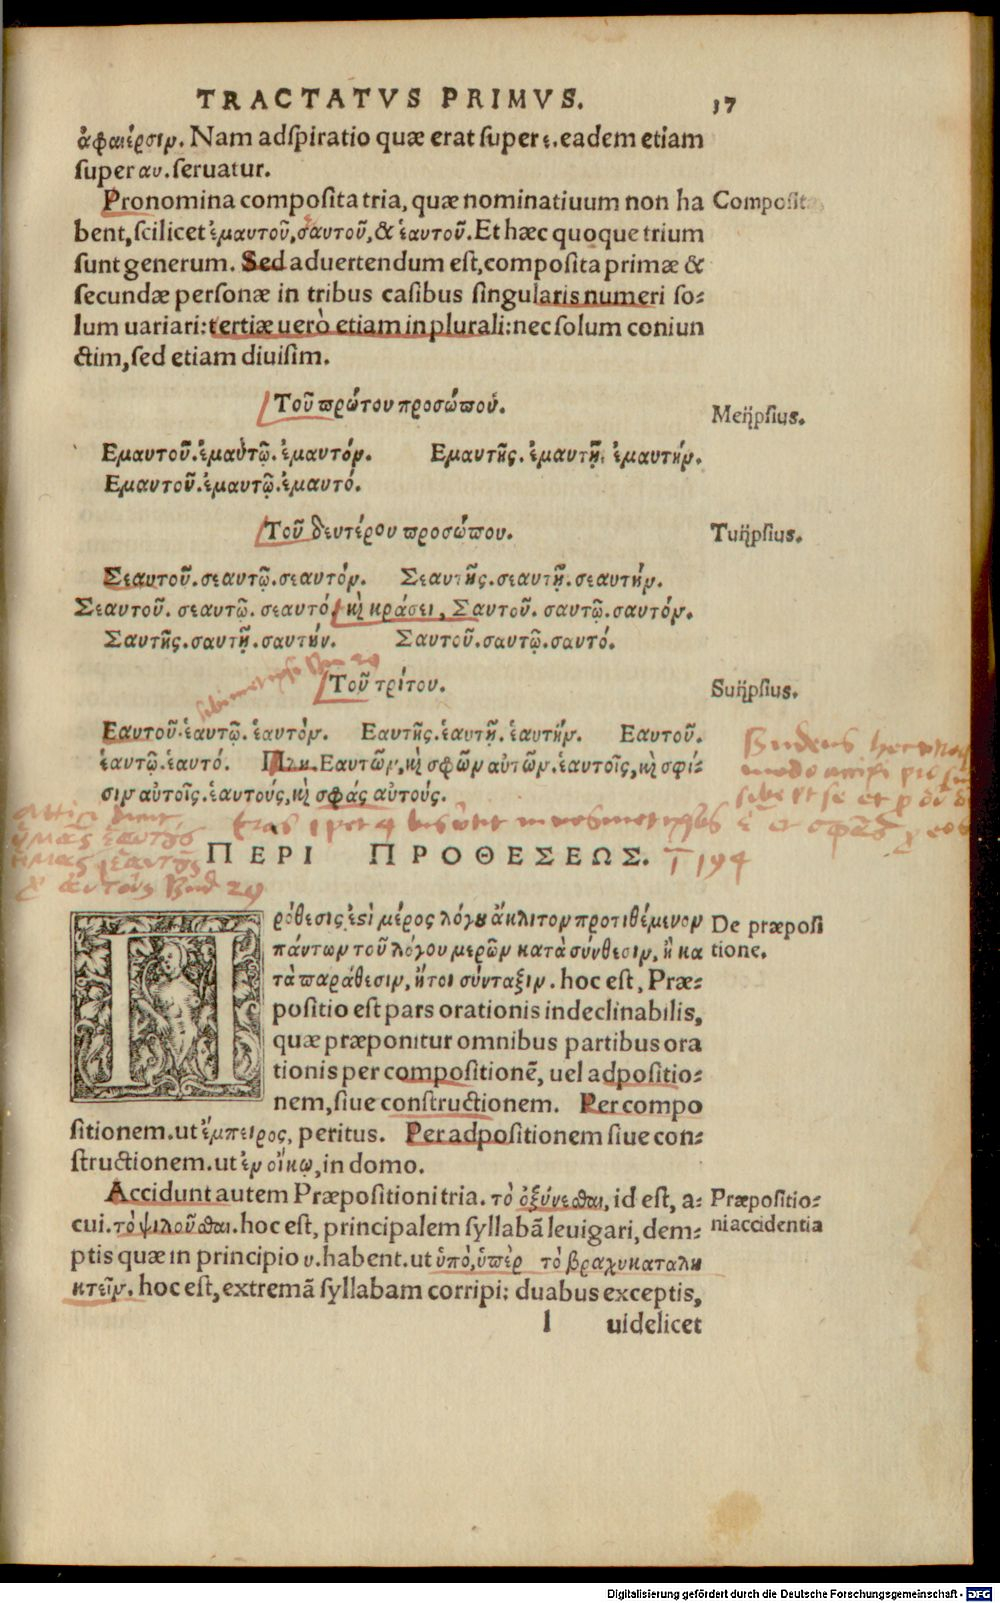 TRACTATVS PRIMVS. 17
ἀφαιέρσιν. Nam adſpiratio quæ erat ſuper ε. eadem etiam
ſuper αυ. ſeruatur.
Pronomina compoſita tria, quæ nominatiuum non ha
Compoſita
bent, ſcilicet ἐμαυτοῦ, σαυτοῦ, & ἑαυτοῦ. Et hæc quoque trium
ſunt generum. Sed aduertendum eſt, compoſita primæ &
ſecundæ perſonæ in tribus caſibus ſingularis numeri ſo-
lum uariari: tertiæ uerò etiam in plurali: nec ſolum coniun
ctim, ſed etiam diuiſim.
Τοῦ πρώτου προσώπου.
Meiipſius.
Εμαυτοῦ. ἐμαυτῷ. ἐμαυτόν. Εμαυτῆς. ἐμαυτῇ. ἐμαυτήν.
Εμαυτοῦ. ἐμαυτῷ. ἐμαυτό.
Τοῦ δευτέρου προσώπου.
Tuiipſius.
Σεαυτοῦ. σεαυτῷ. σεαυτόν. Σεαυτῆς. σεαυτῇ. σεαυτήν.
Σεαυτοῦ. σεαυτῷ. σεαυτό. καὶ κράσει, Σαυτοῦ. σαυτῷ. σαυτόν.
Σαυτῆς. σαυτῇ. σαυτήν. Σαυτοῦ. σαυτῷ. σαυτό.
Τοῦ τρίτου.
Suiipſius.
Εαυτοῦ. ἑαυτῷ. ἑαυτόν. Εαυτῆς. ἑαυτῇ. ἑαυτήν. Εαυτοῦ.
ἑαυτῷ. ἑαυτό. Πλη. Εαυτῶν, καὶ σφῶν αὐτῶν. ἑαυτοῖς, καὶ σφί-
σιν αὐτοῖς. ἑαυτούς, καὶ σφάς αὐτούς.
ΠΕΡΙ ΠΡΟΘΕΣΕΩΣ. T 194
Πρόθεσις ἐστὶ μέρος λόγου ἄκλιτον προτιθέμενον
De præpoſi
πάντων τοῦ λόγου μερῶν κατὰ σύνθεσιν, ἢ κα
tione.
τὰ παράθεσιν, ἤτοι σύνταξιν. hoc eſt, Præ-
poſitio eſt pars orationis indeclinabilis,
quæ præponitur omnibus partibus ora
tionis per compoſitionē, uel adpoſitio-
nem, ſiue conſtructionem. Per compo
ſitionem. ut ἔμπειρος, peritus. Per adpoſitionem ſiue con-
ſtructionem. ut ἐν οἴκῳ, in domo.
Accidunt autem Præpoſitioni tria. τὸ ὀξύνεσθαι, id eſt, a-
Præpoſitio-
cui. τὸ ψιλοῦσθαι. hoc eſt, principalem ſyllabā leuigari, dem-
ni accidentia
ptis quæ in principio υ. habent. ut ὑπό, ὑπὲρ τὸ βραχυκαταλη
κτεῖν. hoc eſt, extremā ſyllabam corripi: duabus exceptis,
l uidelicet
Digitalisierung gefördert durch die Deutsche Forschungsgemeinschaft - DFG